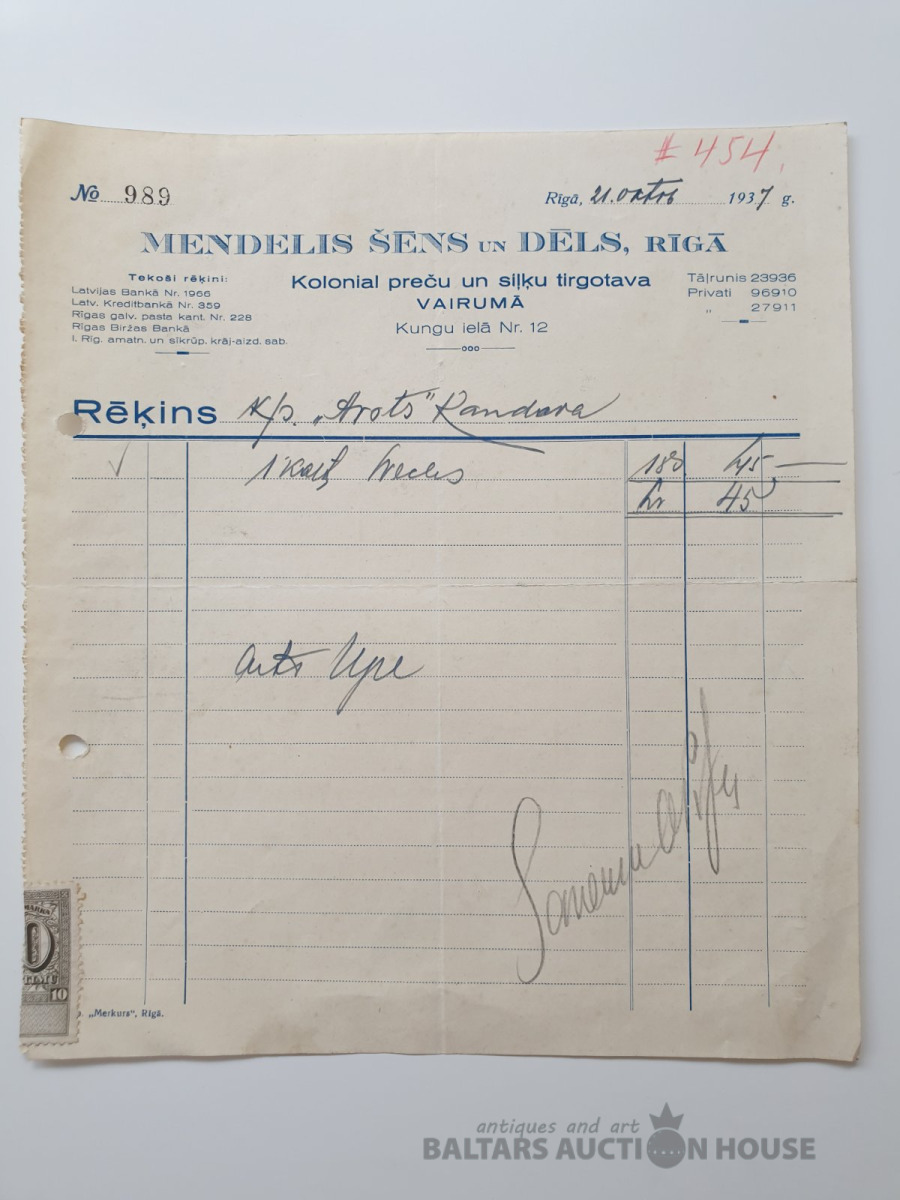 # 454.
No 989
Rīgā, 21. oktob 1937 g.
MENDELIS ŠĒNS UN DĒLS, RĪGĀ
Tekoši rēķini:
Latvijas Bankā Nr. 1966
Latv. Kreditbankā Nr. 359
Rīgas galv. pasta kant. Nr. 228
Rīgas Biržas Bankā
I. Rīg. amatn. un sīkrūp. krāj-aizd. sab.
Kolonial preču un siļķu tirgotava
VAIRUMĀ
Kungu ielā Nr. 12
Tāļrunis 23936
Privati 96910
„ 27911
Rēķins k/p. „Arots" Kandava
1 180 Ls 45 —
Ls 45
10
„Merkurs", Rīgā.
antiques and art
BALTARS AUCTION HOUSE